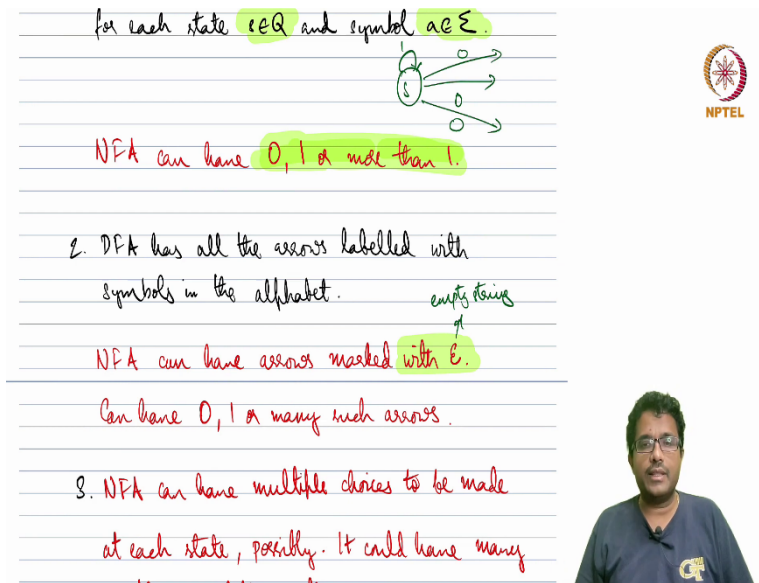 for each state s∈Q and symbol a∈Σ.
1
0
S
0
0
NPTEL
NFA can have 0, 1 or more than 1.
2. DFA has all the arrows labelled with
symbols in the alphabet.
empty string
NFA can have arrows marked with ε.
Can have 0, 1 or many such arrows.
3. NFA can have multiple choices to be made
at each state, possibly. It could have many
GT